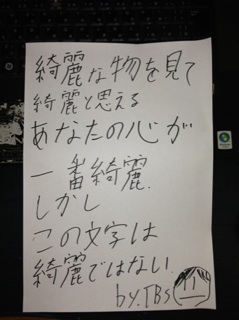 綺麗な物を見て
綺麗と思える
あなたの心が
一番綺麗.
しかし
この文字は
綺麗ではない.
by.TBs